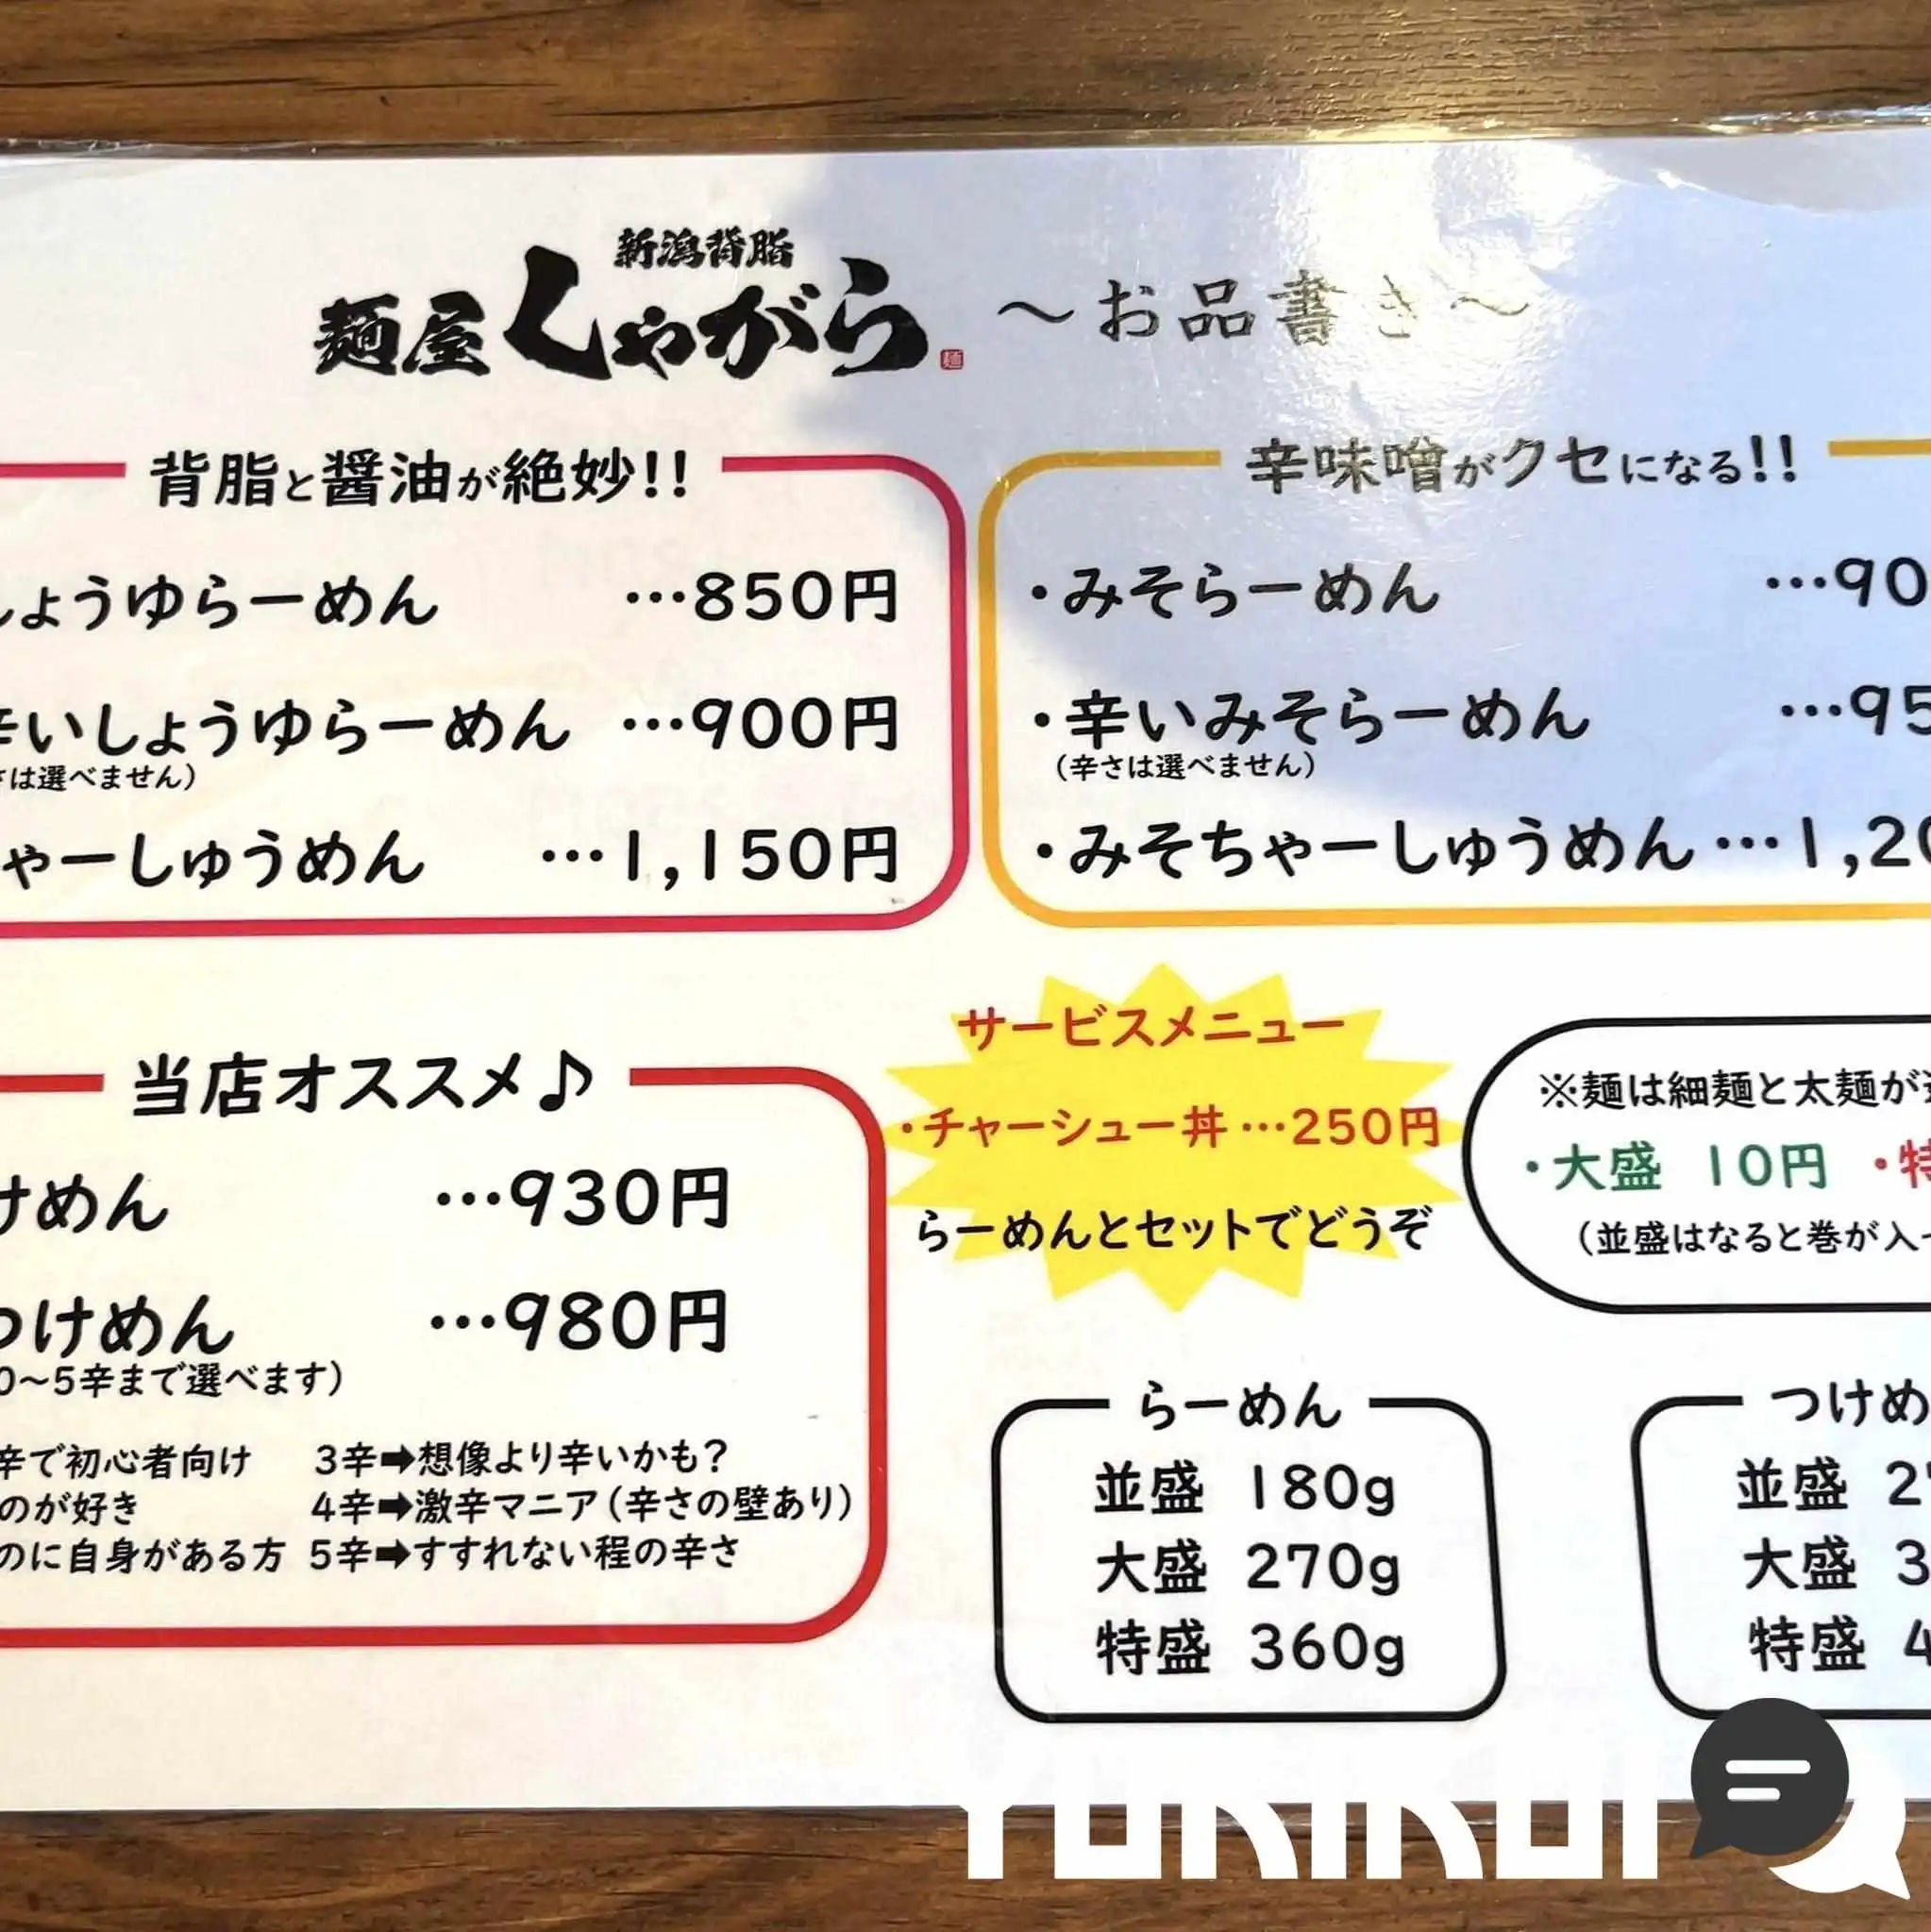 新潟背脂
麺屋しゃがら
麺
〜お品書き〜
背脂と醤油が絶妙!!
しょうゆらーめん …850円
辛いしょうゆらーめん …900円
さは選べません)
ゃーしゅうめん …1,150円
辛味噌がクセになる!!
・みそらーめん …90
・辛いみそらーめん …95
(辛さは選べません)
・みそちゃーしゅうめん …1,20
当店オススメ♪
けめん …930円
つけめん …980円
0〜5辛まで選べます)
辛で初心者向け
のが好き
のに自身がある方
3辛➡想像より辛いかも?
4辛➡激辛マニア(辛さの壁あり)
5辛➡すすれない程の辛さ
サービスメニュー
・チャーシュー丼…250円
らーめんとセットでどうぞ
※麺は細麺と太麺が
・大盛 10円 ・特
(並盛はなると巻が入っ
らーめん
並盛 180g
大盛 270g
特盛 360g
つけめ
並盛 2
大盛 3
特盛 4